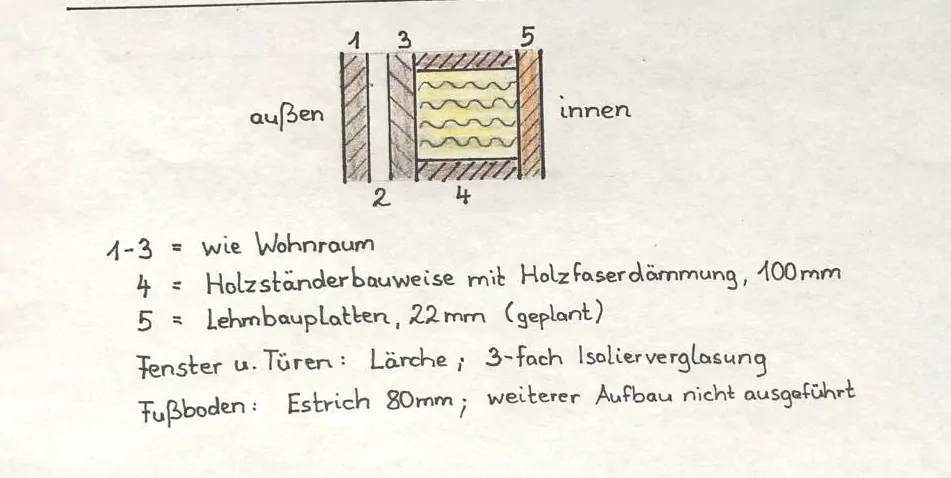 1 3 5
außen innen
2 4
1-3 = wie Wohnraum
4 = Holzständerbauweise mit Holzfaserdämmung, 100mm
5 = Lehmbauplatten, 22mm (geplant)
Fenster u. Türen: Lärche; 3-fach Isolierverglasung
Fußboden: Estrich 80mm; weiterer Aufbau nicht ausgeführt